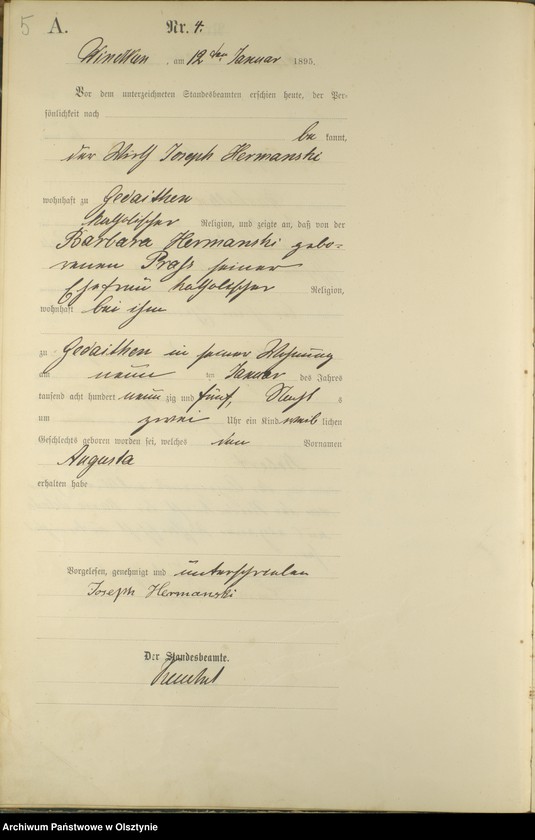 5 A. Nr. 4.
Windtken, am 12 ten Januar 1895.
Vor dem unterzeichneten Standesbeamten erschien heute, der Per-
sönlichkeit nach
be kannt,
der Wirth Joseph Hermanski
wohnhaft zu Gedaithen
katholischer Religion, und zeigte an, daß von der
Barbara Hermanski gebo-
renen seiner
Ehefrau katholischer Religion,
wohnhaft bei ihm
zu Gedaithen in seiner Wohnung
am neun ten Januar des Jahres
tausend acht hundert neun zig und fünf, Nacht s
um zwei Uhr ein Kind weib lichen
Geschlechts geboren worden sei, welches den Vornamen
Augusta
erhalten habe
Vorgelesen, genehmigt und unterschrieben
Joseph Hermanski
Der Standesbeamte.
Archiwum Państwowe w Olsztynie